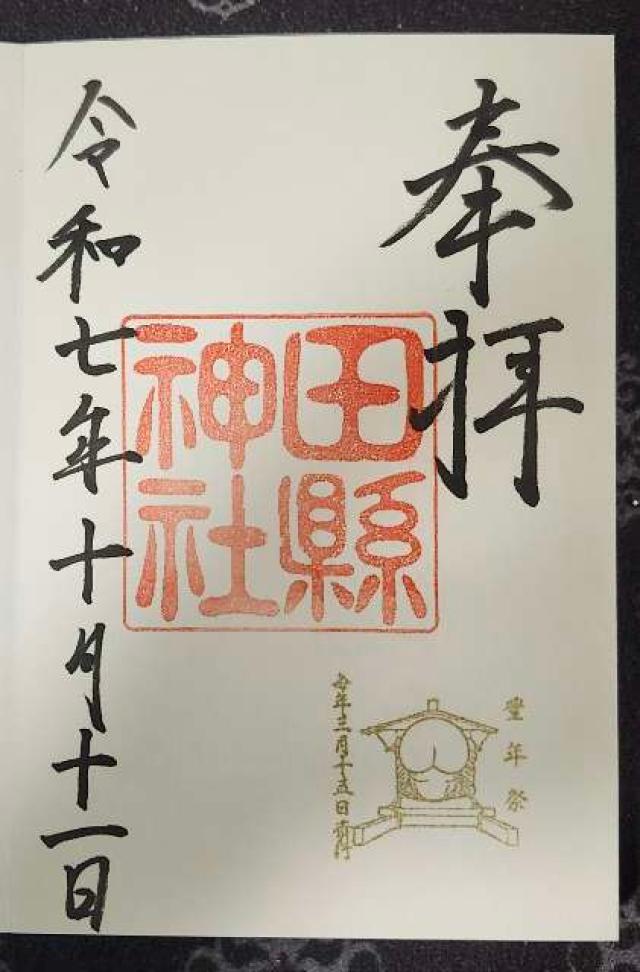 奉拝
田縣
神社
豊年祭
毎年三月十五日斎行
令和七年十月十一日